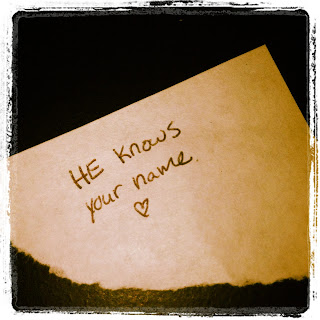 HE knows
your name.
♡